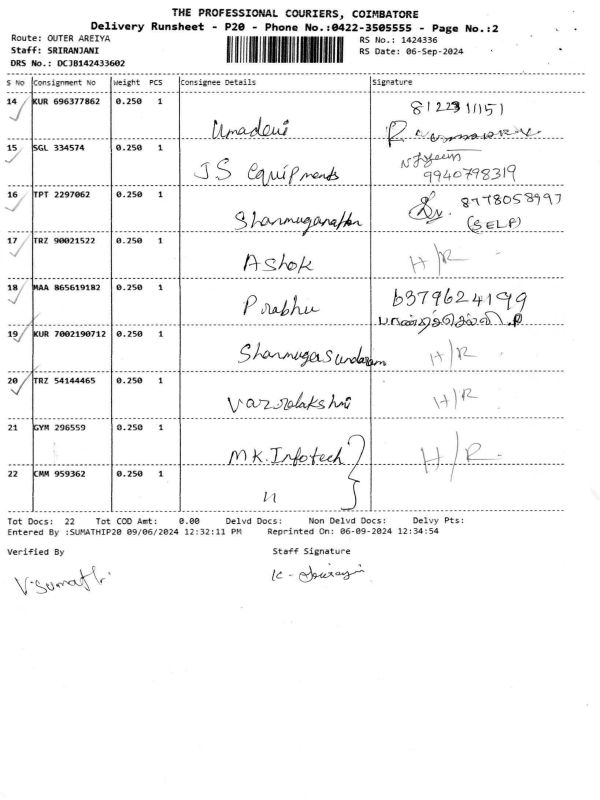 THE PROFESSIONAL COURIERS, COIMBATORE
Delivery Runsheet - P20 - Phone No.:0422-3505555 - Page No.:2
Route: OUTER AREIYA RS No.: 1424336
Staff: SRIRANJANI RS Date: 06-Sep-2024
DRS No.: DCJB142433602
S No Consignment No Weight PCS Consignee Details Signature
14 KUR 696377862 0.250 1 Umadevi
15 SGL 334574 0.250 1 JS Equipments 9940798319
16 TPT 2297062 0.250 1 Shanmuganathan 8778058997 (SELF)
17 TRZ 90021522 0.250 1 Ashok H/R
18 MAA 865619182 0.250 1 Prabhu 6379624199
19 KUR 7002190712 0.250 1 Shanmuga Sundaram H/R
20 TRZ 54144465 0.250 1 Varalakshmi H/R
21 GYM 296559 0.250 1 M K. Infotech H/R
22 CMM 959362 0.250 1 "
Tot Docs: 22 Tot COD Amt: 0.00 Delvd Docs: Non Delvd Docs: Delvy Pts:
Entered By :SUMATHIP20 09/06/2024 12:32:11 PM Reprinted On: 06-09-2024 12:34:54
Verified By Staff Signature
V. Sumathi